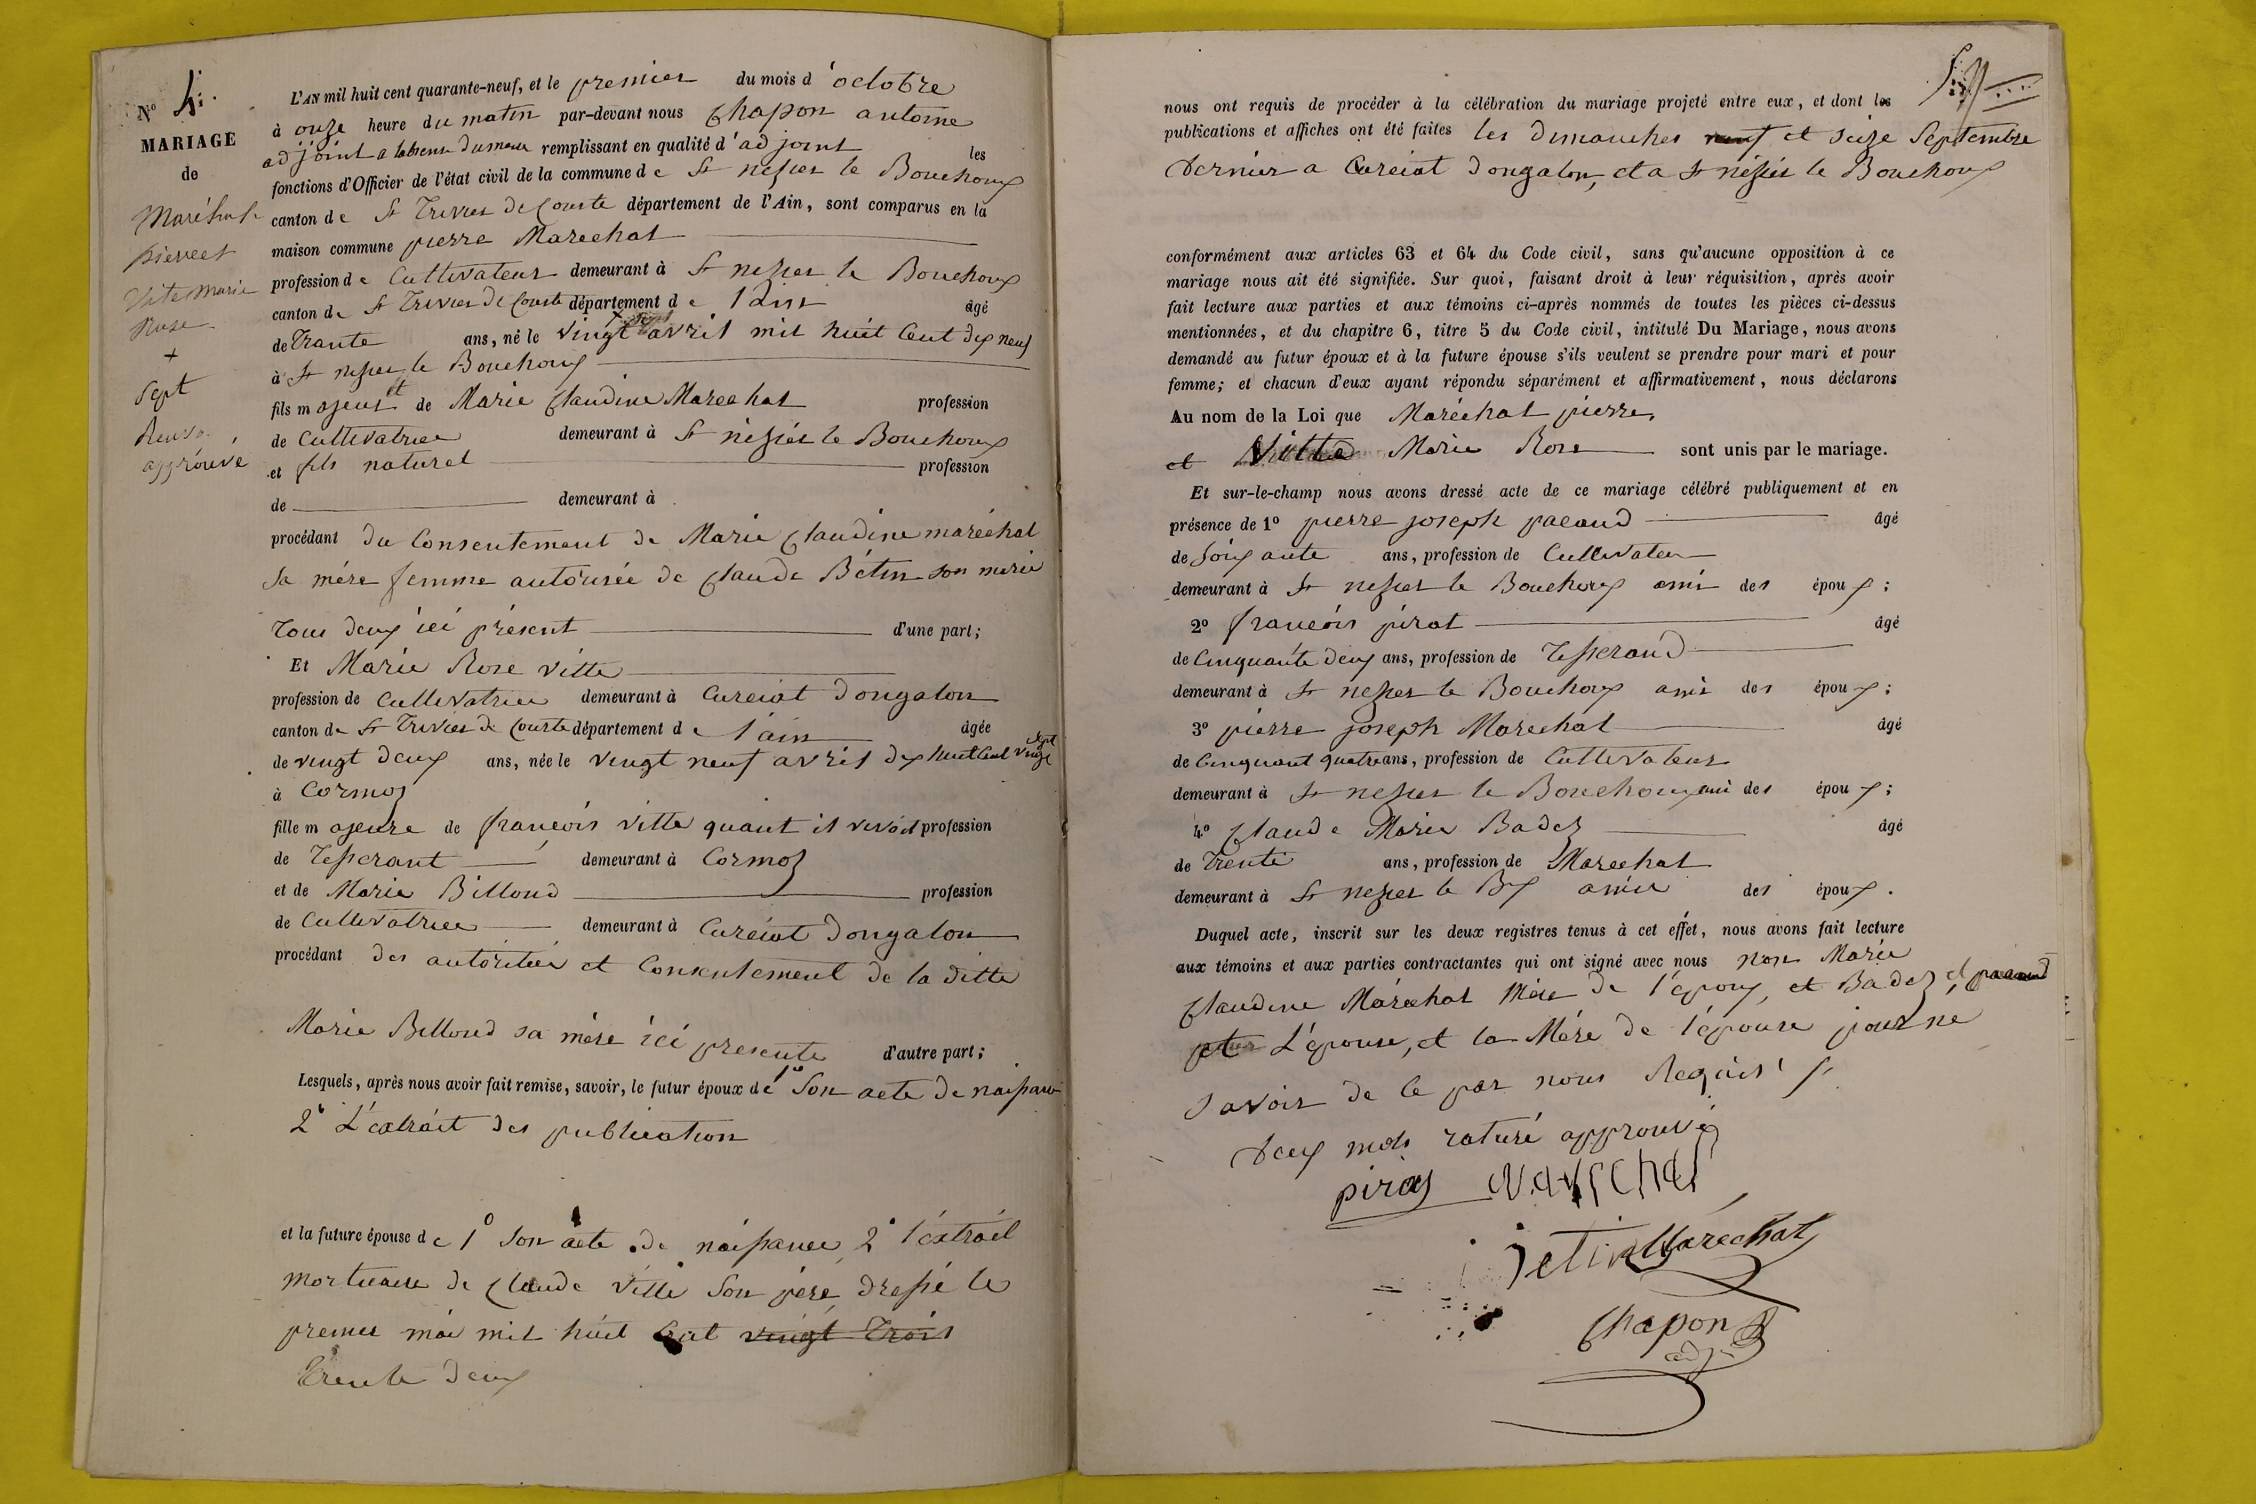 N° 4.
MARIAGE
de
Maréchal
pierre et
Vite Marie
Rose
+
sept
Renvoi
approuvé
L'AN mil huit cent quarante-neuf, et le premier du mois d'octobre
à onze heure du matin par-devant nous Chapon antoine
adjoint a labsence du maire remplissant en qualité d'adjoint les
fonctions d'Officier de l'état civil de la commune de St nizier le Bouchoux
canton de St Trivier de Courte département de l'Ain, sont comparus en la
maison commune pierre Marechal
profession de Cultivateur demeurant à St nizier le Bouchoux
canton de St Trivier de Courte département de l'ain âgé
de Trante ans, né le vingt + avril mil huit Cent dix neuf
à St nizier le Bouchoux
fils majeur et de Marie Claudine Marechal profession
de Cultivatrice demeurant à St niziér le Bouchoux
et fils naturel profession
de demeurant à
procédant du Consentement de Marie Claudine maréchal
sa mére femme autoirisée de Claude Bétin son marie
Tous deux ici présent d'une part;
Et Marie Rose Vitte
profession de Cultivatrice demeurant à Curciat dongalon
canton de St Trivier de Courte département de l'ain âgée
de vingt deux ans, née le vingt neuf avril dix huit Cent vingt sept
à Cormoz
fille majeure de francois Vitte quant il vivoit profession
de Tisserant demeurant à Cormoz
et de Marie Billoud profession
de Cultivatrice demeurant à Curciat Dongalon
procédant des autoritéés et Consentement de la ditte
Marie Billoud sa mére ici presente d'autre part;
Lesquels, après nous avoir fait remise, savoir, le futur époux de 1° Son acte de naissance
2° L'extrait des publication
et la future épouse de 1° Son acte de naissance 2° l'éxtrait
mortuaire de Claude Vitte Son pére, dressé le
premier mai mil huit Cent vingt Trois
Trente deux
nous ont requis de procéder à la célébration du mariage projeté entre eux, et dont les
publications et affiches ont été faites les dimanches neuf et seize Septembre
dernier a Curciat Dongalon, et a St niziér le Bouchoux
conformément aux articles 63 et 64 du Code civil, sans qu'aucune opposition à ce
mariage nous ait été signifiée. Sur quoi, faisant droit à leur réquisition, après avoir
fait lecture aux parties et aux témoins ci-après nommés de toutes les pièces ci-dessus
mentionnées, et du chapitre 6, titre 5 du Code civil, intitulé Du Mariage, nous avons
demandé au futur époux et à la future épouse s'ils veulent se prendre pour mari et pour
femme; et chacun d'eux ayant répondu séparément et affirmativement, nous déclarons
Au nom de la Loi que Maréchal pierre,
et Vitte Marie Rose sont unis par le mariage.
Et sur-le-champ nous avons dressé acte de ce mariage célébré publiquement et en
présence de 1° pierre joseph pacoud âgé
de Soixante ans, profession de Cultivateur
demeurant à St nizier le Bouchoux ami des époux;
2° francois pirat âgé
de Cinquante deux ans, profession de Tisserand
demeurant à St nizier le Bouchoux ami des époux;
3° pierre joseph Marechal âgé
de Cinquant quatre ans, profession de Cultivateur
demeurant à St nizier le Bouchoux ami des époux;
4° Claude Marie Badez âgé
de Trente ans, profession de Marechal
demeurant à St nizier le Bx amie des époux.
Duquel acte, inscrit sur les deux registres tenus à cet effet, nous avons fait lecture
aux témoins et aux parties contractantes qui ont signé avec nous non Marie
Claudine Maréchal Mére de l'époux, et Badez, et pacoud
et L'épouse, et la Mére de l'épouse pour ne
savoir de ce par nous Requis
deux mots raturé approuvé
piraz Marechal
Betin Maréchal
Chapon
adj